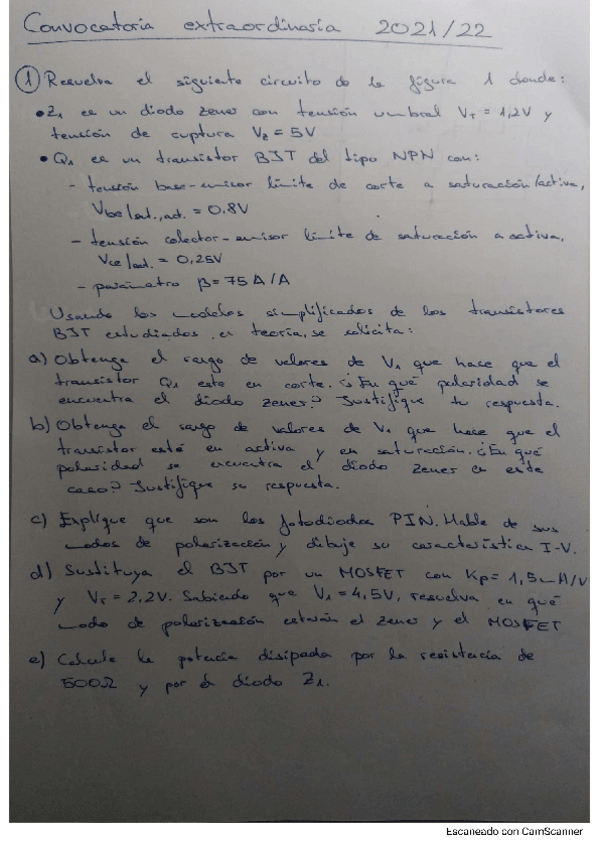 Convocatoria extraordinaria 2021/22
① Resuelva el siguiente circuito de la figura 1 donde:
• Z1 es un diodo zener con tensión umbral VT = 1,2V y
tensión de ruptura Vz = 5V
• Q1 es un transistor BJT del tipo NPN con:
- tensión base-emisor límite de corte a saturación/activa,
Vbe/sat.,act. = 0,8V
- tensión colector-emisor límite de saturación a activa,
Vce/sat. = 0,25V
- parámetro β = 75 A/A
Usando los modelos simplificados de los transistores
BJT estudiados en teoría, se solicita:
a) Obtenga el rango de valores de V1 que hace que el
transistor Q1 este en corte. ¿En qué polaridad se
encuentra el diodo zener? Justifique tu respuesta.
b) Obtenga el rango de valores de V1 que hace que el
transistor esté en activa y en saturación. ¿En qué
polaridad se encuentra el diodo zener en este
caso? Justifique su respuesta.
c) Explique que son los fotodiodos PIN. Hable de sus
modos de polarización y dibuje su característica I-V.
d) Sustituya el BJT por un MOSFET con Kp = 1,5mA/V
y VT = 2,2V. Sabiendo que V1 = 4,5V, resuelva en qué
modo de polarización estarán el zener y el MOSFET
e) Calcule la potencia disipada por la resistencia de
500Ω y por el diodo Z1.
Escaneado con CamScanner